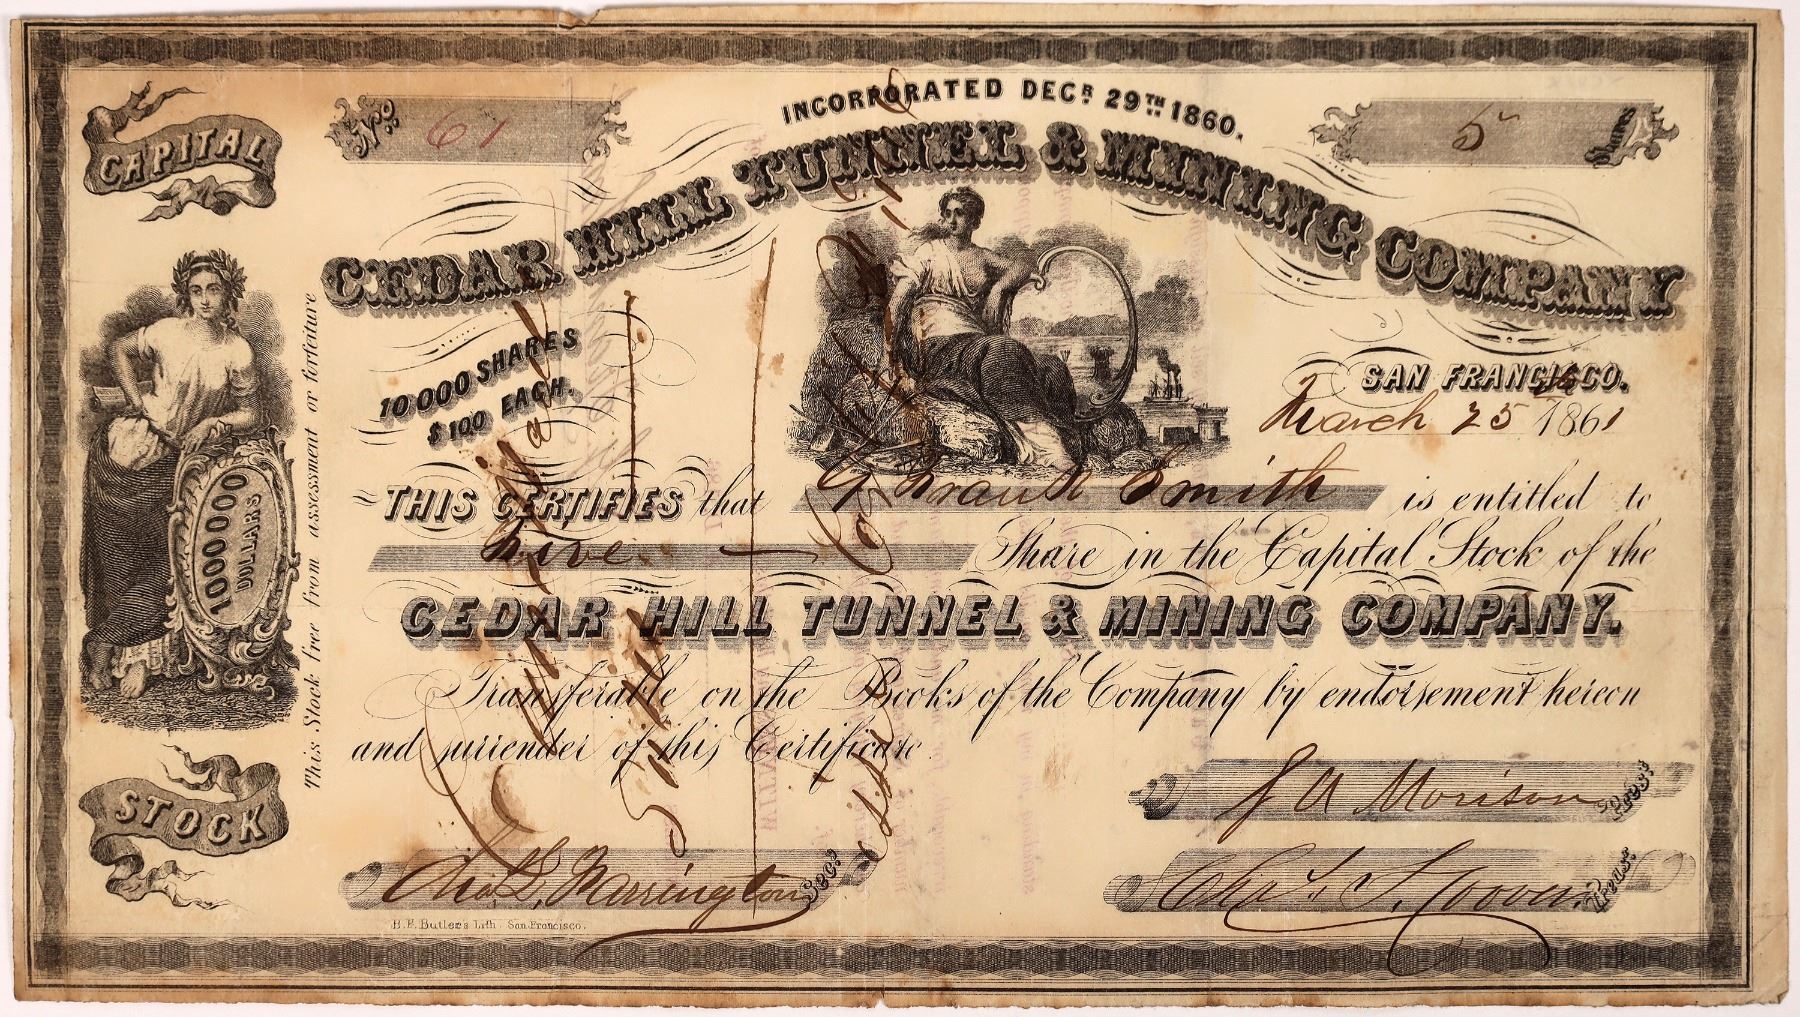 CAPITAL
No. 61
INCORPORATED DECR. 29TH 1860.
5 Shares
CEDAR HILL TUNNEL & MINING COMPANY
10000 SHARES
$100 EACH.
SAN FRANCISCO.
March 25 1861
THIS CERTIFIES that G Frank Smith is entitled to
Five Share in the Capital Stock of the
CEDAR HILL TUNNEL & MINING COMPANY.
Transferable on the Books of the Company by endorsement hereon
and surrender of this Certificate
This Stock free from assessment or forfeiture
1000000
DOLLARS
STOCK
J A Morison Pres:
Chas L. Farrington Sec:
Chas S. Treas:
B.F. Butler's Lith. San Francisco.